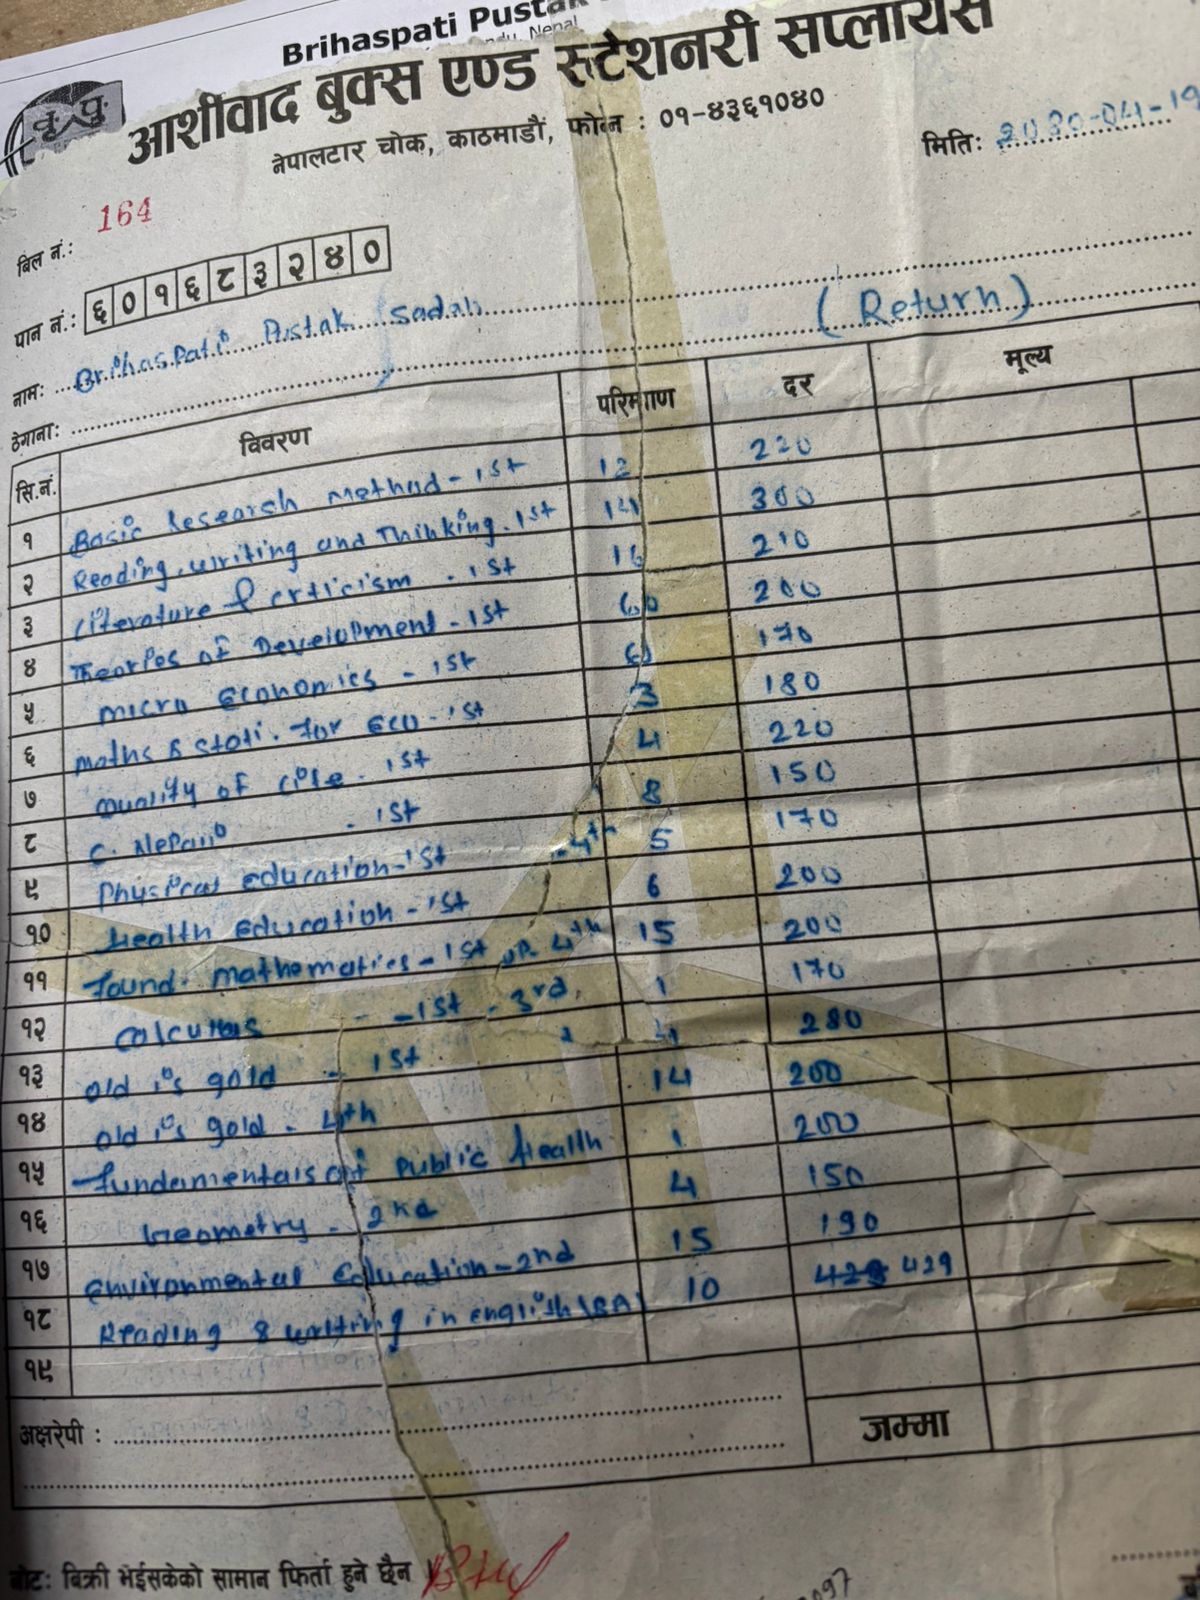 Brihaspati Pustak
Nepal
वृ पु
आशीर्वाद बुक्स एण्ड स्टेशनरी सप्लायर्स
नेपालटार चोक, काठमाडौं, फोन : ०१-४३६१०४०
मितिः 2080-04-19
बिल नं.: 164
पान नं.: ६०१६८३२४०
नामः Brihaspati Pustak Sadan
ठेगानाः (Return)
सि.नं. विवरण परिमाण दर मूल्य
१ Basic Research Method - 1st 12 220
२ Reading, writing and Thinking. 1st 14 300
३ Literature & criticism . 1st 16 210
४ Theories of Development - 1st 60 200
५ micro Economics - 1st 170
६ maths & stati. for Eco - 1st 3 180
७ Quality of Life - 1st 4 220
८ C. Nepali - 1st 8 150
९ Physical Education - 1st - 4th 5 170
१० Health Education - 1st 6 200
११ Found. mathematics - 1st 4th 15 200
१२ Calculus - 1st - 3rd 1 170
१३ Old is gold - 1st 4 280
१४ Old is gold - 4th 14 200
१५ Fundamentals of Public Health 1 200
१६ Geometry - 2nd 4 150
१७ Environmental Education - 2nd 15 190
१८ Reading & writing in english (BA) 10 429
१९
अक्षरेपी :
जम्मा
नोटः बिक्री भईसकेको सामान फिर्ता हुने छैन ।